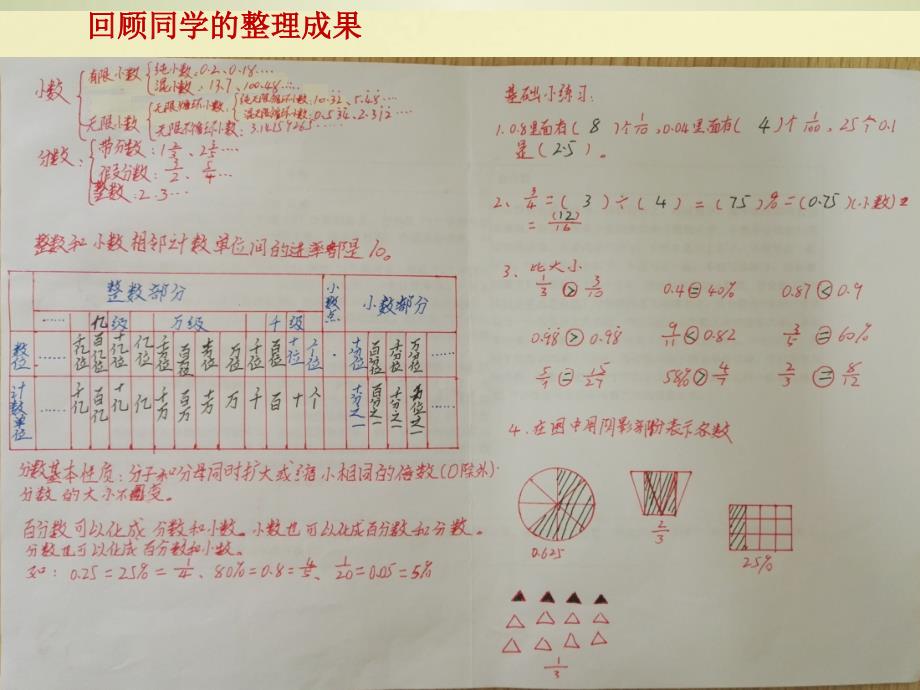 回顾同学的整理成果
小数
有限小数
纯小数:0.2、0.18……
混小数:13.7、100.48……
无限小数
无限循环小数
纯无限循环小数:10.32、5.48…
混无限循环小数:0.534、2.312…
无限不循环小数:3.14159265……
分数:
带分数:1 2/3、2 3/5…
假分数:3/2、5/4…
整数:2.3…
整数和小数相邻计数单位间的进率都是10。
整数部分 小数点 小数部分
…… 亿级 万级 千级
数位 …… 千亿位 百亿位 十亿位 亿位 千万位 百万位 十万位 万位 千位 百位 十位 个位 · 十分位 百分位 千分位 万分位 ……
计数单位 …… 千亿 百亿 十亿 亿 千万 百万 十万 万 千 百 十 个 十分之一 百分之一 千分之一 万分之一 ……
分数基本性质:分子和分母同时扩大或缩小相同的倍数(0除外)
分数的大小不变。
百分数可以化成分数和小数。小数也可以化成百分数和分数。
分数也可以化成百分数和小数。
如:0.25=25%=1/4、80%=0.8=4/5、1/20=0.05=5%
基础小练习:
1.0.8里面有(8)个1/10,0.04里面有(4)个1/100,25个0.1
是(2.5)。
2、3/4=(3)÷(4)=(75)%=(0.75)(小数)
=(12)/16
3、比大小
1/3>3/10 0.4=40% 0.87<0.9
9/11<0.82 3/5=60%
5/9=15/27 58%>4/7 2/3=8/12
4.在图中用阴影部分表示各数
0.625
2/3
25%
1/3